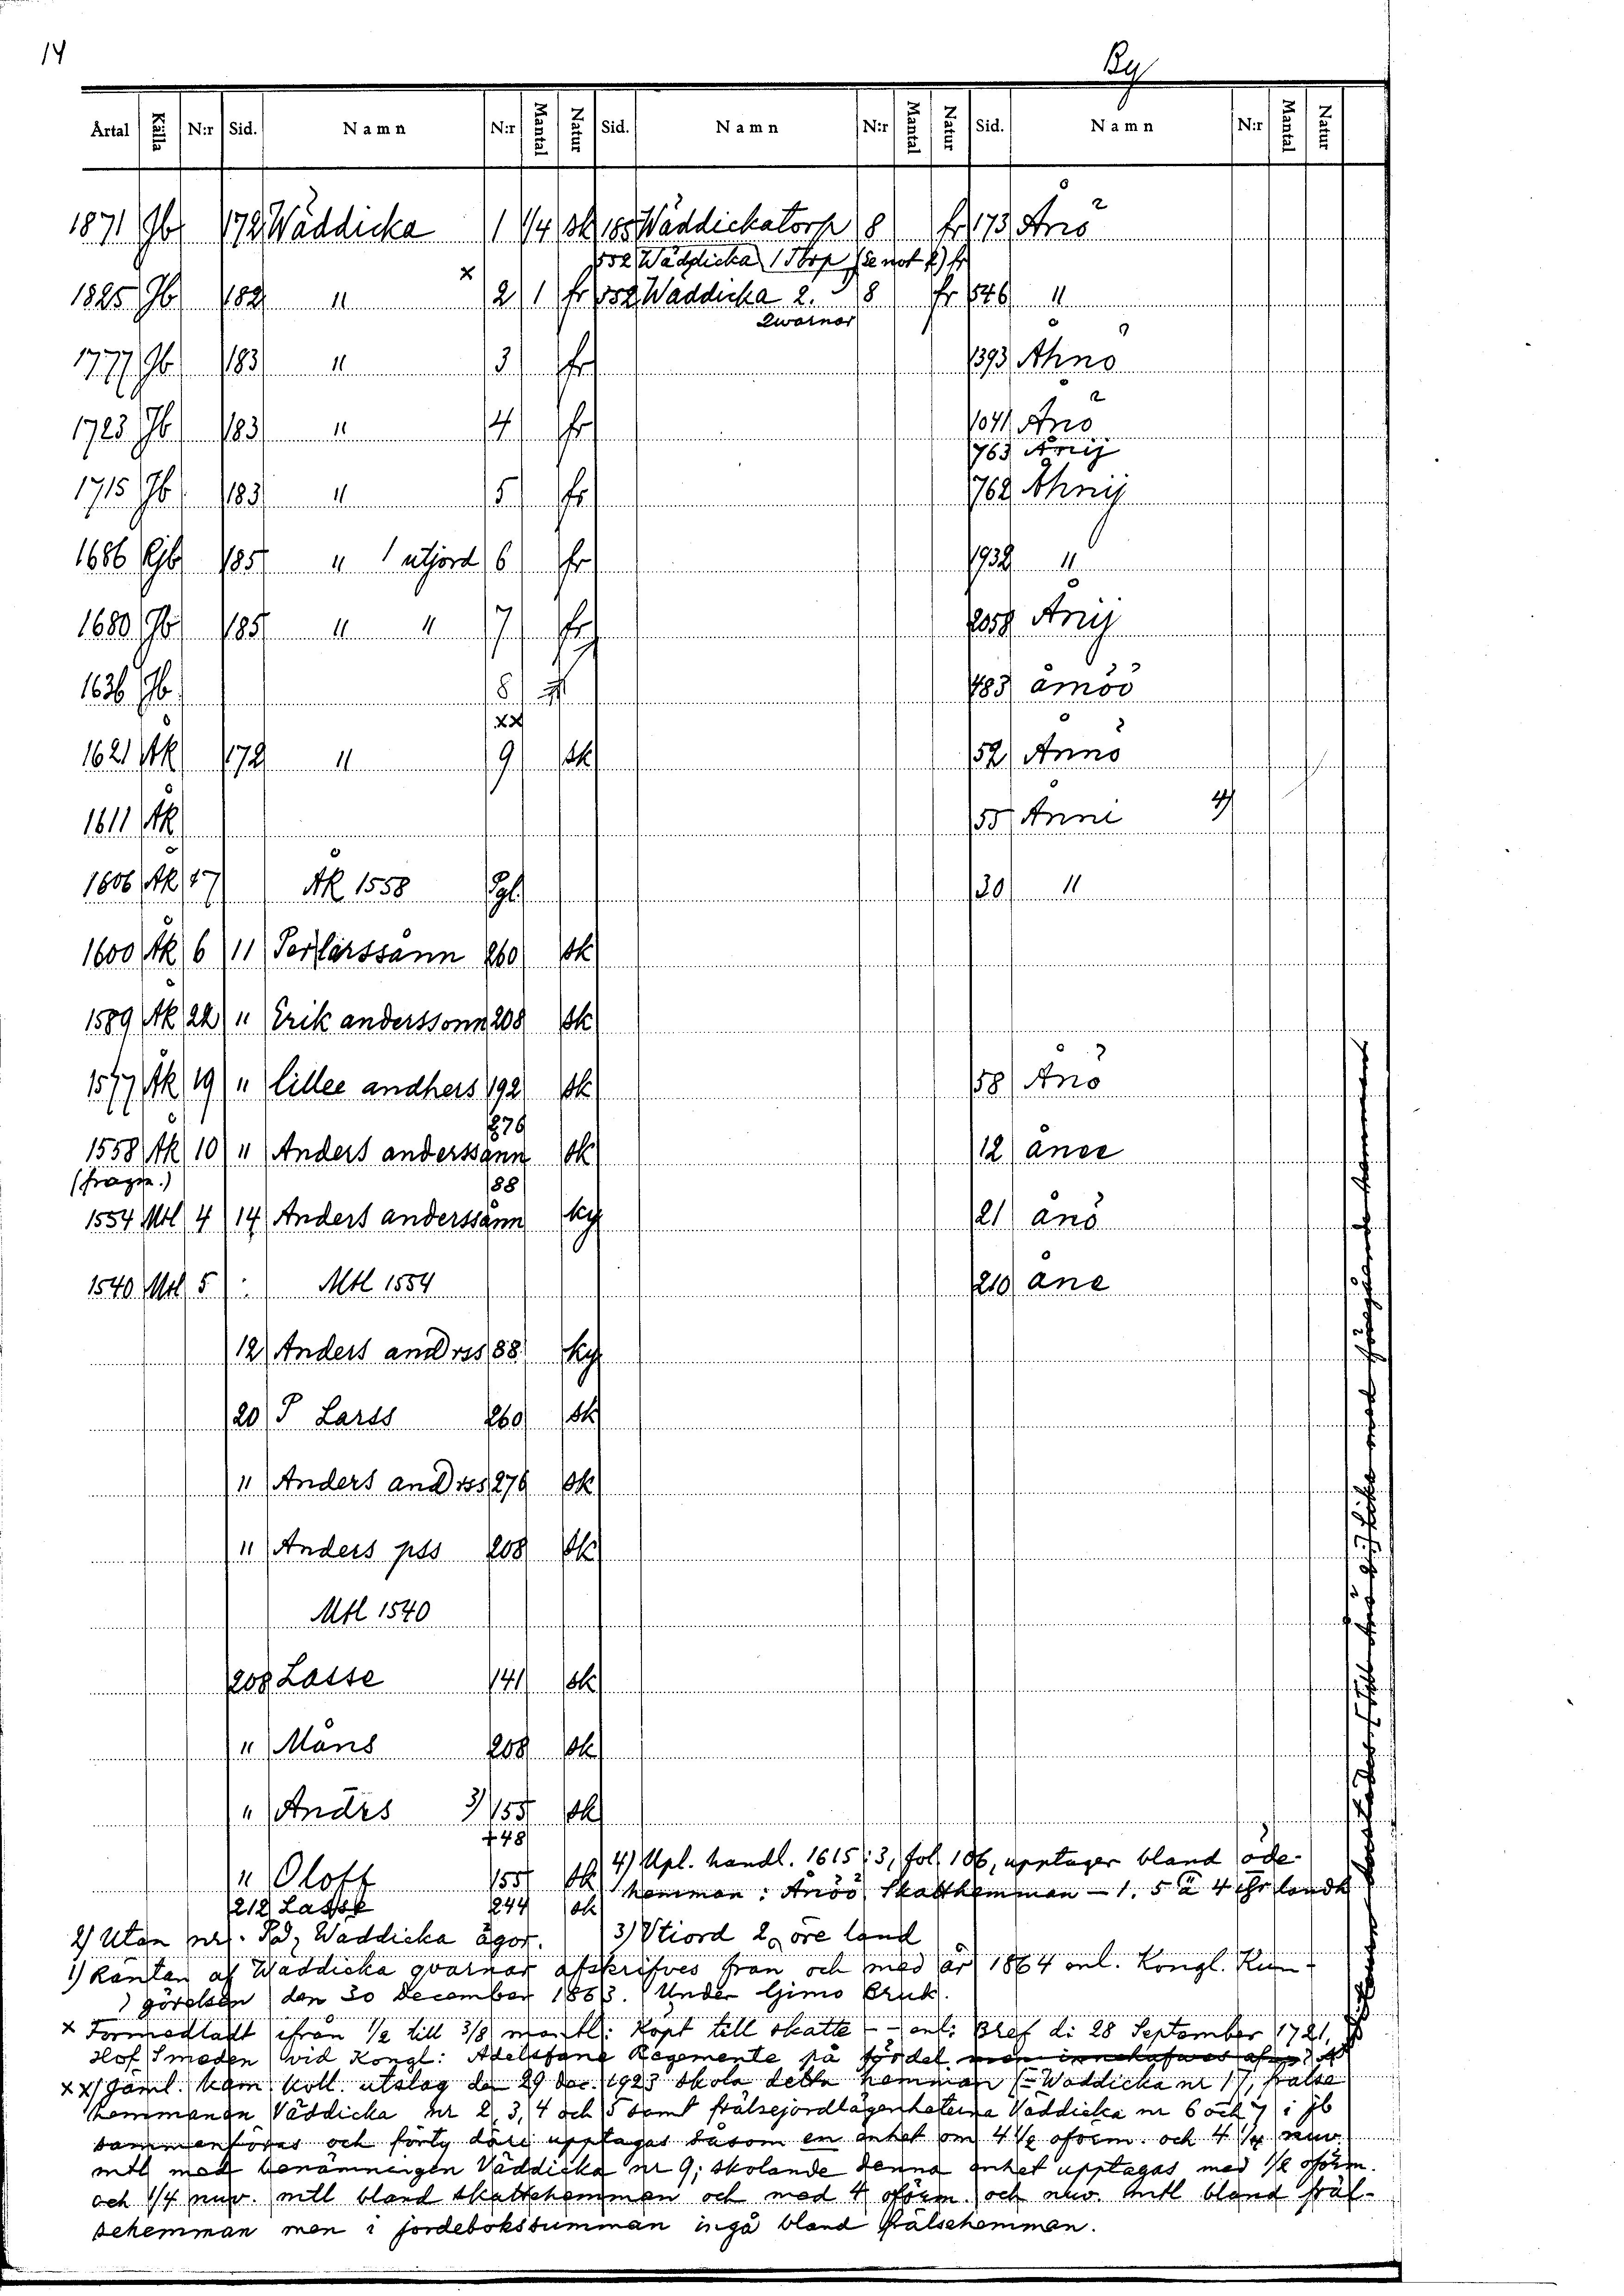 14
By
Årtal Källa N:r Sid. Namn N:r Mantal Natur Sid. Namn N:r Mantal Natur Sid. Namn N:r Mantal Natur
1871 Jb 172 Wäddicka 1 1/4 sk 185 Wäddickatorp 8 fr 173 Ånö
552 Wäddicka 1 Torp (se not 2) fr
1825 Jb 182 " x 2 1 fr 552 Wäddicka 2. 8 fr 546 "
Qwarnar
1777 Jb 183 " 3 fr 1393 Åhnö
1723 Jb 183 " 4 fr 1041 Anö
763 Årij
1715 Jb 183 " 5 fr 762 Åhnij
1686 Jb 185 " 1 utjord 6 fr 1932 "
1680 Jb 185 " " 7 fr 2058 Ånij
1636 Jb 8 fr 483 åmöö
xx
1621 Åk 172 " 9 sk 52 Ånnö
1611 Åk 55 Anne 4)
1606 Åk 17 Åk 1558 Pgl. 30 "
1600 Åk 6 11 Per larssånn 260 sk
1589 Åk 22 " Erik anderssonn 208 sk
1577 Åk 19 " lillee andhers 192 sk 58 Ånö
276
1558 Åk 10 " Anders anderssånn sk 12 ånee
(fragm.) 88
1554 Mtl 4 14 Anders anderssånn ky 21 ånö
1540 Mtl 5 : Mtl 1554 210 åne
12 Anders andrss 88 ky
20 P Larss 260 sk
" Anders andrss 276 sk
" Anders pss 208 sk
Mtl 1540
208 Lasse 141 sk
" Måns 208 sk
" Andrs 3) 155 sk
+48
" Oloff 155 sk
4) Upl. handl. 1615:3, fol. 106, upptager bland öde-
hemman: Ånöö Skatthemman – 1. 5 a 4 öhr landh
212 Lasse 244 sk
2) Utan nr. På Wäddicka ägor. 3) Vtiord 2 öre land
1) Räntan af Wäddicka qvarnar afskrifves från och med år 1864 enl. Kongl. Kun-
görelsen den 30 december 1863. Under Gimo Bruk.
x Förmedladt ifrån 1/2 till 3/8 mantl: Köpt till skatte – – enl: Bref d: 28 September 1721,
Hof Smeden wid Kongl: Adelsfane Regemente på fördel
xx) Jäml. Kam. Koll. utslag den 29 dec. 1923 skola detta hemman (= Wäddicka nr 1), frälse
hemmanen Väddicka nr 2, 3, 4 och 5 samt frälsejordlägenheterna Väddicka nr 6 och 7 i jb
sammanföras och förty däri upptagas såsom en enhet om 4 1/2 oförm. och 4 1/4 nuv.
mtl med benämningen Väddicka nr 9; skolande denna enhet upptagas med 1/2 oförm.
och 1/4 nuv. mtl bland skattehemman och med 4 oförm. och nuv. mtl bland fräl-
sehemman men i jordebokssumman ingå bland frälsehemman.